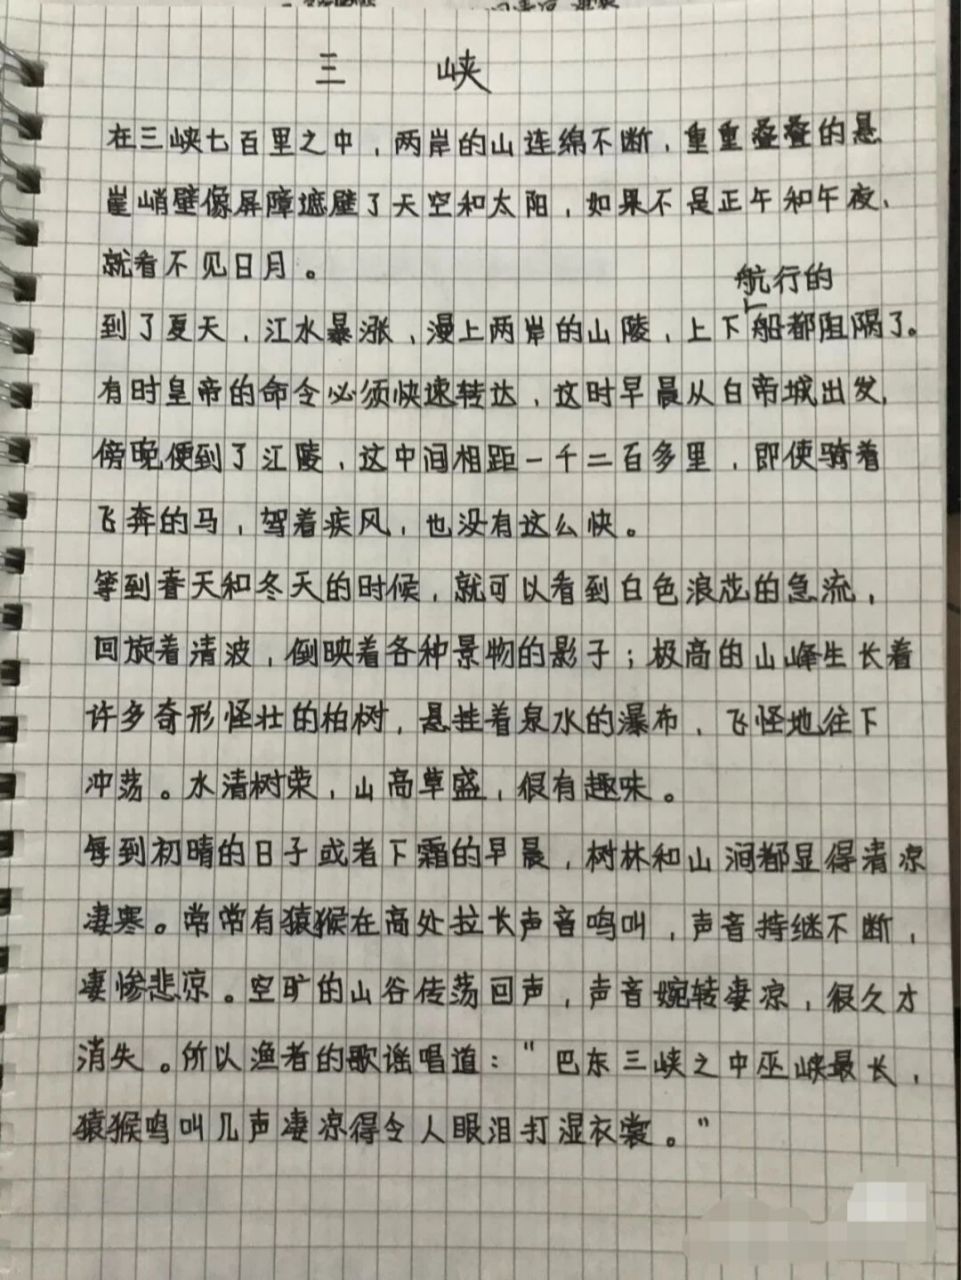 三 峡
在三峡七百里之中，两岸的山连绵不断，重重叠叠的悬
崖峭壁像屏障遮壁了天空和太阳，如果不是正午和午夜，
就看不见日月。
航行的
到了夏天，江水暴涨，漫上两岸的山陵，上下船都阻隔了。
有时皇帝的命令必须快速转达，这时早晨从白帝城出发，
傍晚便到了江陵，这中间相距一千二百多里，即使骑着
飞奔的马，驾着疾风，也没有这么快。
等到春天和冬天的时候，就可以看到白色浪花的急流，
回旋着清波，倒映着各种景物的影子；极高的山峰生长着
许多奇形怪壮的柏树，悬挂着泉水的瀑布，飞怪地往下
冲荡。水清树荣，山高草盛，很有趣味。
每到初晴的日子或者下霜的早晨，树林和山涧都显得清凉
凄寒。常常有猿猴在高处拉长声音鸣叫，声音持继不断，
凄惨悲凉。空旷的山谷传荡回声，声音婉转凄凉，很久才
消失。所以渔者的歌谣唱道："巴东三峡之中巫峡最长，
猿猴鸣叫几声凄凉得令人眼泪打湿衣裳。"